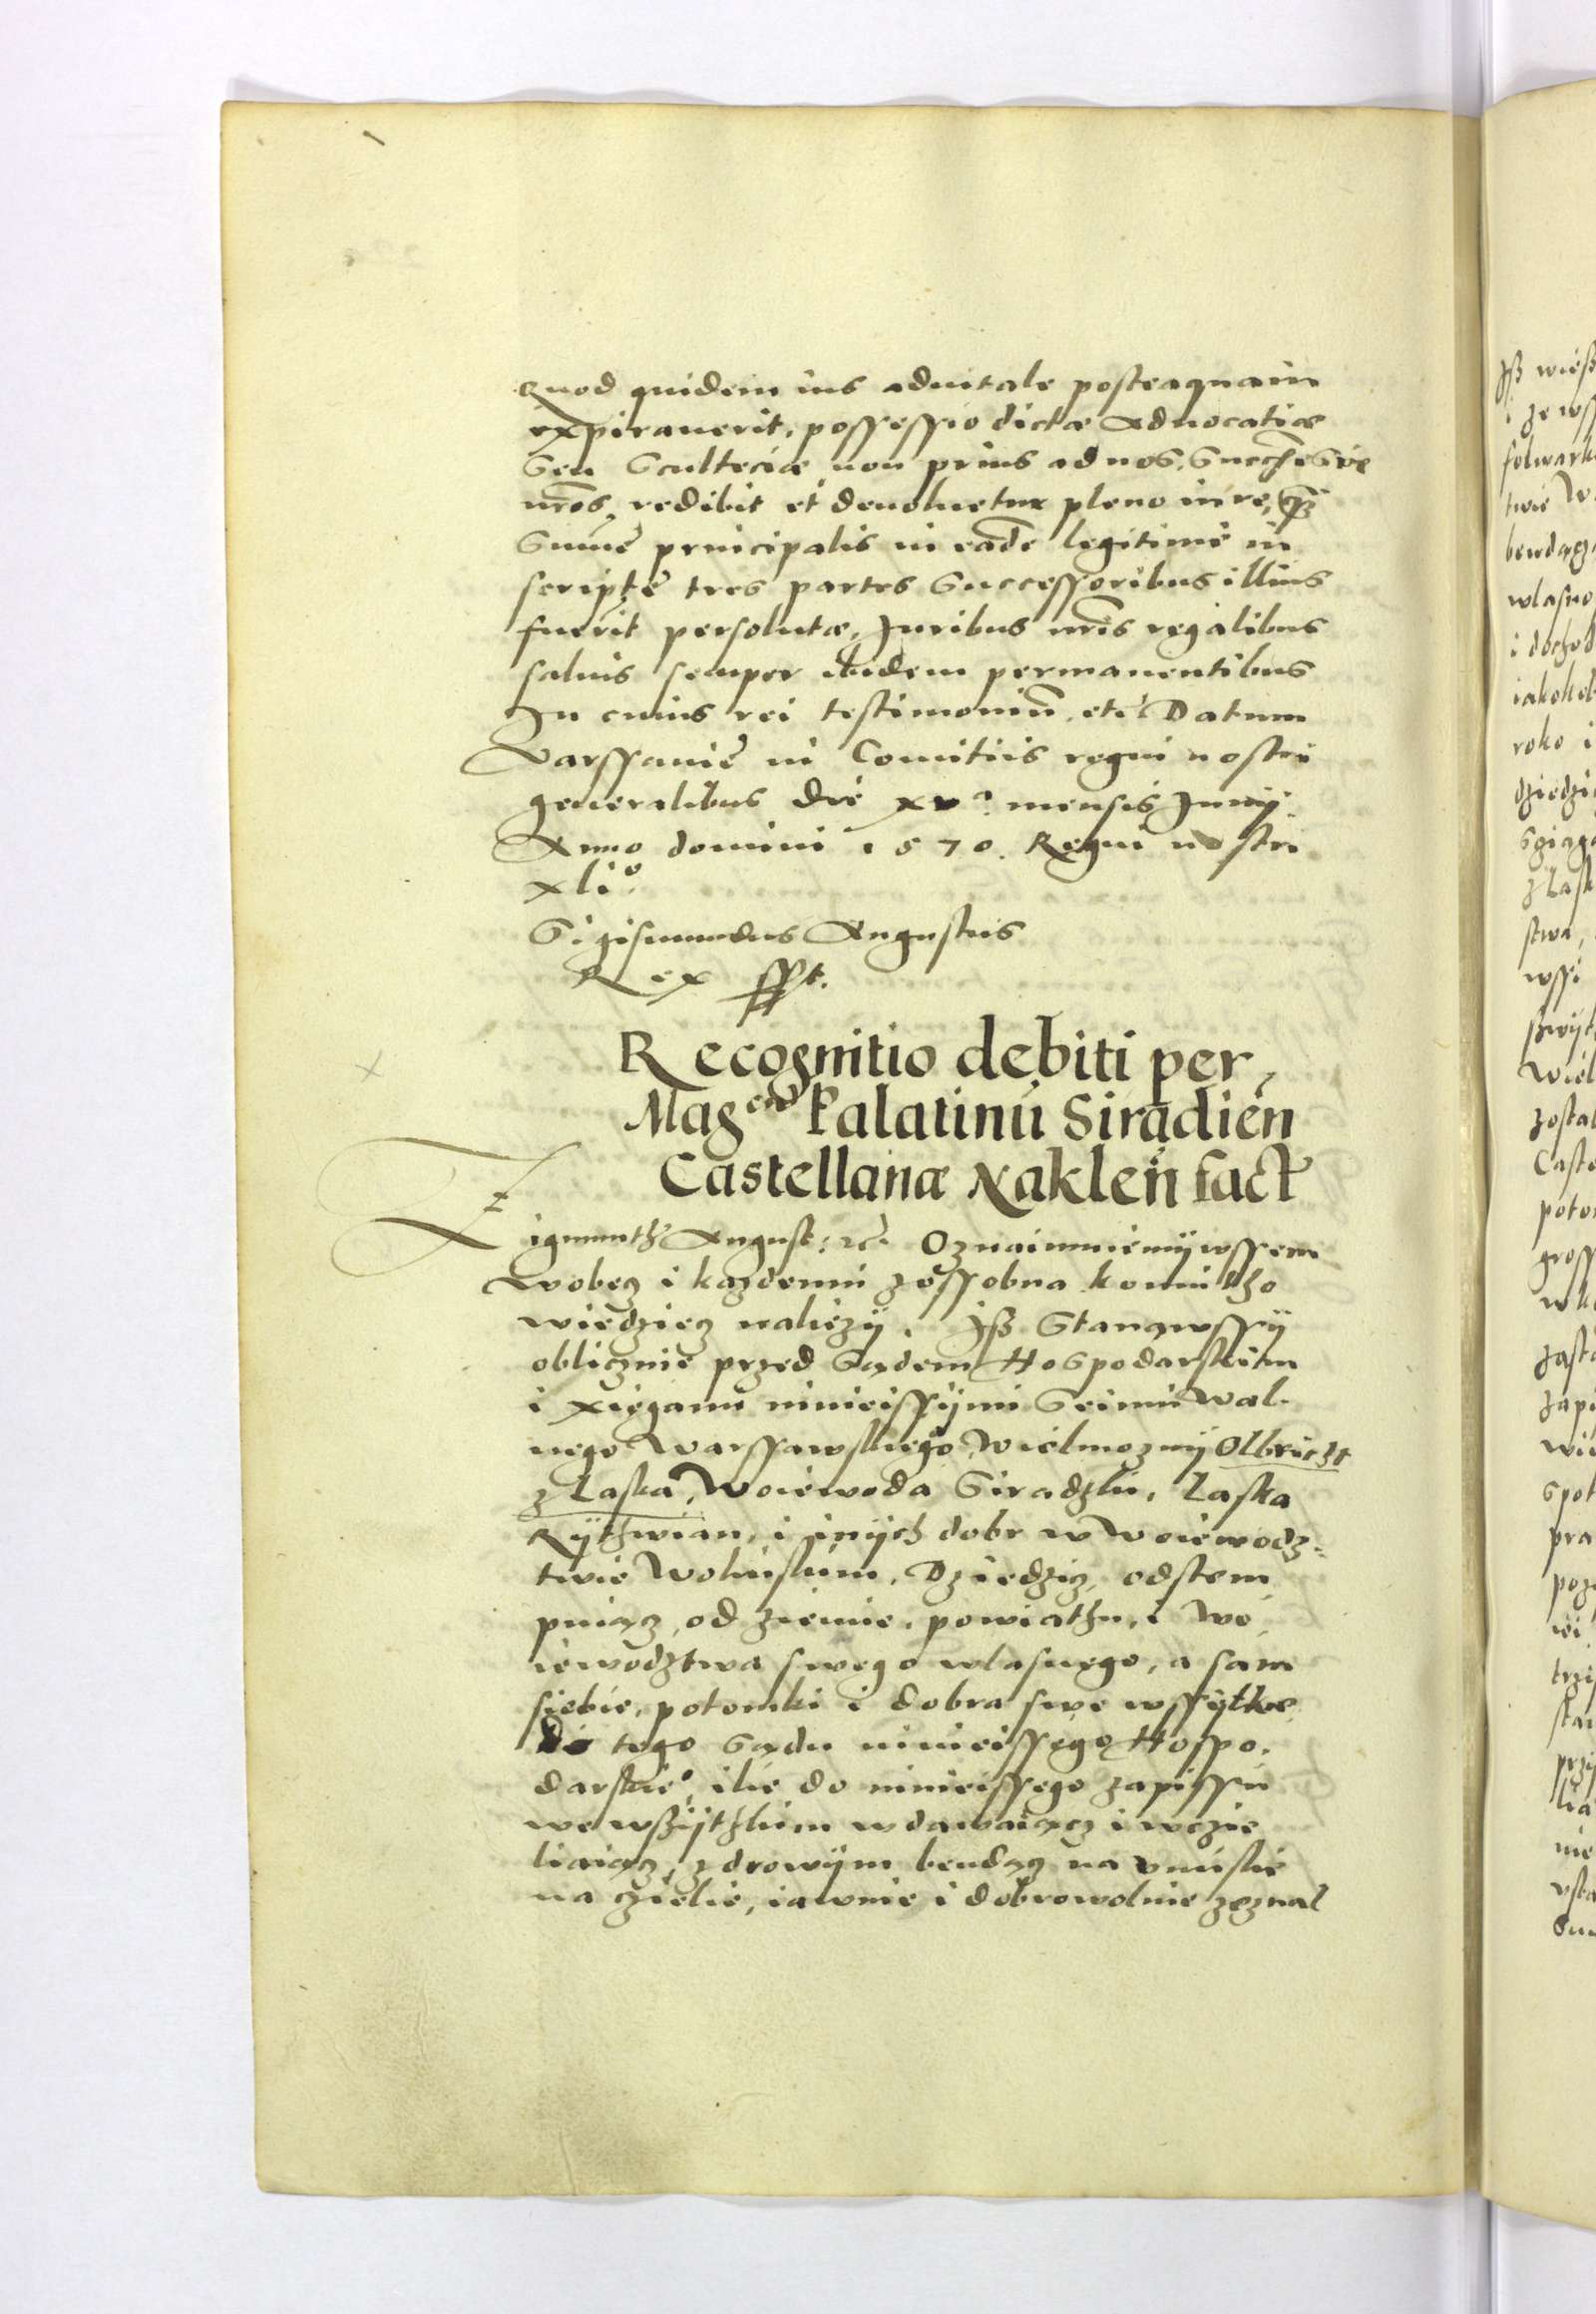 Quod quidem ius aduitale posteaquam
expirauerit, possessio dictæ Aduocatiæ
Seu Scultetiæ non prius ad nos, Succeſſores
nros, redibit et deuoluetur pleno iure,
Sumē principalis in eadē legitimè in
scriptē tres partes Successoribus illius
fuerit persolutæ, Juribus nris regalibus
saluis semper ibidem permanentibus
In cuius rei testimoniū etc Datum
Varssauiē in Comitiis regni nostri
generalibus die xva mensis Junij
Anno domini 1570. Regni nostri
xlio
Sigismundus Augustus
Rex sspt.
Recognitio debiti per
Magcũ Palatinū Siradień
Castellanæ Naklen̄ fact
Zigmunth August: etc. Oznaimuiemÿ wssem
wobecz i kazdemu zossobna komu tho
wiedziecz nalieżÿ. Jß Stanąwssÿ
oblicznie przed Sądem Hospodarskim
i xięgami ninieissÿmi Seimu wal-
nego Warssawskiego Wielmoznÿ Olbricht
z Łaska, Woiewoda Siradzki, Łaska
Rÿthwian, i inÿch dobr w Woiewodz-
twie Wolinskim, Dziedzicz, odstem
puiącz, od ziemie, powiathu, i Wo
iewodztwa swego własnego, a sam
siebie, potomki i dobra swe wssÿtkie
do tego Sądu ninieissego Hospo.
darskieo, ilie do ninieissego zapissu
we wßÿthkim wdawaiącz i wczie
liaiącz, zdrowÿm bendącz na vmislie
na czielie, iawnie i dobrowolnie zeznal